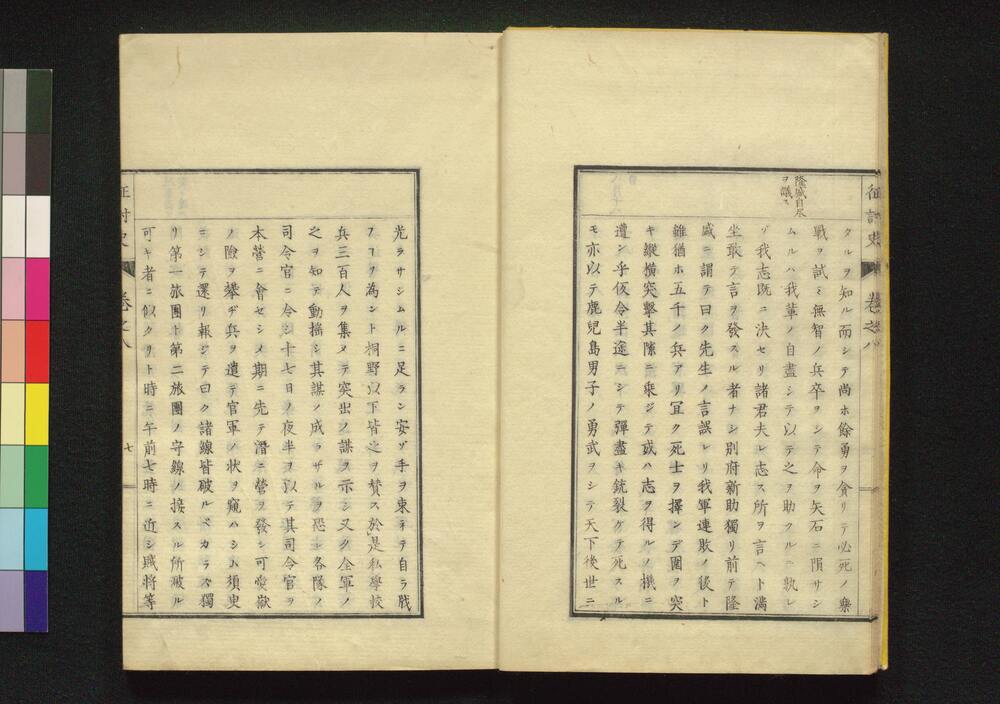 征討史 卷之八
隆盛自尽
ヲ議ス
タルヲ知ル而シテ尚ホ餘勇ヲ貪リテ必死ノ樂
戰ヲ試ミ無智ノ兵卒ヲシテ令ヲ矢石ニ隕サシ
ムルハ我輩ノ自盡シテ以テ之ヲ助クルニ孰レ
ゾ我志既ニ決セリ諸君夫レ志ス所ヲ言ヘト滿
坐敢テ言ヲ發スル者ナシ別府新助獨リ前テ隆
盛ニ謂テ曰ク先生ノ言誤レリ我軍連敗ノ後ト
雖猶ホ五千ノ兵アリ冝ク死士ヲ擇ンデ圍ヲ突
キ縱橫突擊其隙ニ乘ジテ或ハ志ヲ得ルノ機ニ
遭ン乎仮令半途ニシテ彈盡キ銃裂ケテ死スル
モ亦以テ鹿兒島男子ノ勇武ヲシテ天下後世ニ
光ラサシムルニ足ラン安ゾ手ヲ束子テ自ラ戕
フヿヲ為ント桐野以下皆之ヲ賛ス於是私學校
兵三百人ヲ集メテ突出ノ謀ヲ示シ又タ全軍ノ
之ヲ知テ動搖シ其謀ノ成ラザルヲ恐レ各隊ノ
司令官ニ令シ十七日ノ夜半ヲ以テ其司令官ヲ
本營ニ會セシメ期ニ先テ潛ニ營ヲ發シ可愛嶽
ノ險ヲ攀ヂ兵ヲ遣テ官軍ノ状ヲ窺ハシム須臾
ニシテ還リ報ジテ曰ク諸線皆破ルベカラズ獨
リ第一旅團ト第二旅團ノ守線ノ接スル所破ル
可キ者ニ似タリト時ニ午前七時ニ近シ賊將等
征討史 卷之八
七